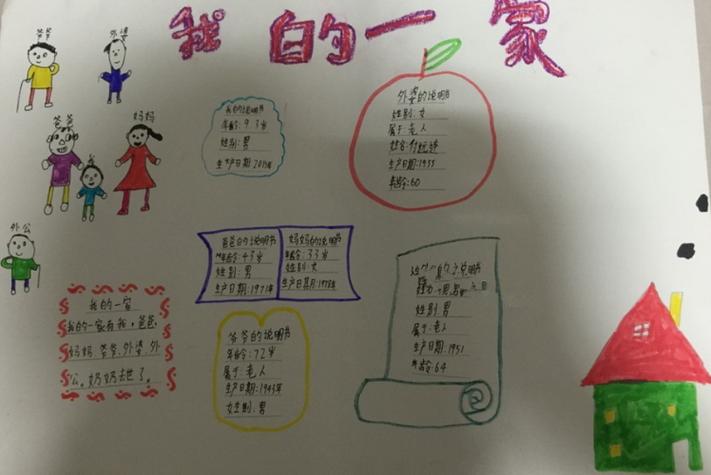 我的一家
爷爷
外婆
爸爸
妈妈
我
外公
我的说明书
年龄:9岁
性别:男
生产日期
外婆的说明书
性别:女
属于老人
生产日期:1955
年龄:60
爸爸的说明书
年龄:43岁
性别:男
生产日期:1971年
妈妈的说明书
年龄:33岁
性别:女
生产日期:
爷爷的说明书
年龄:72岁
属于:老人
生产日期:1943年
女生别:男
说明书
性别男
属于:老人
生产日期:1951
年龄:64
我的一家
我的一家有我,爸爸,
妈妈、爷爷、外婆、外
公。奶奶去世了。